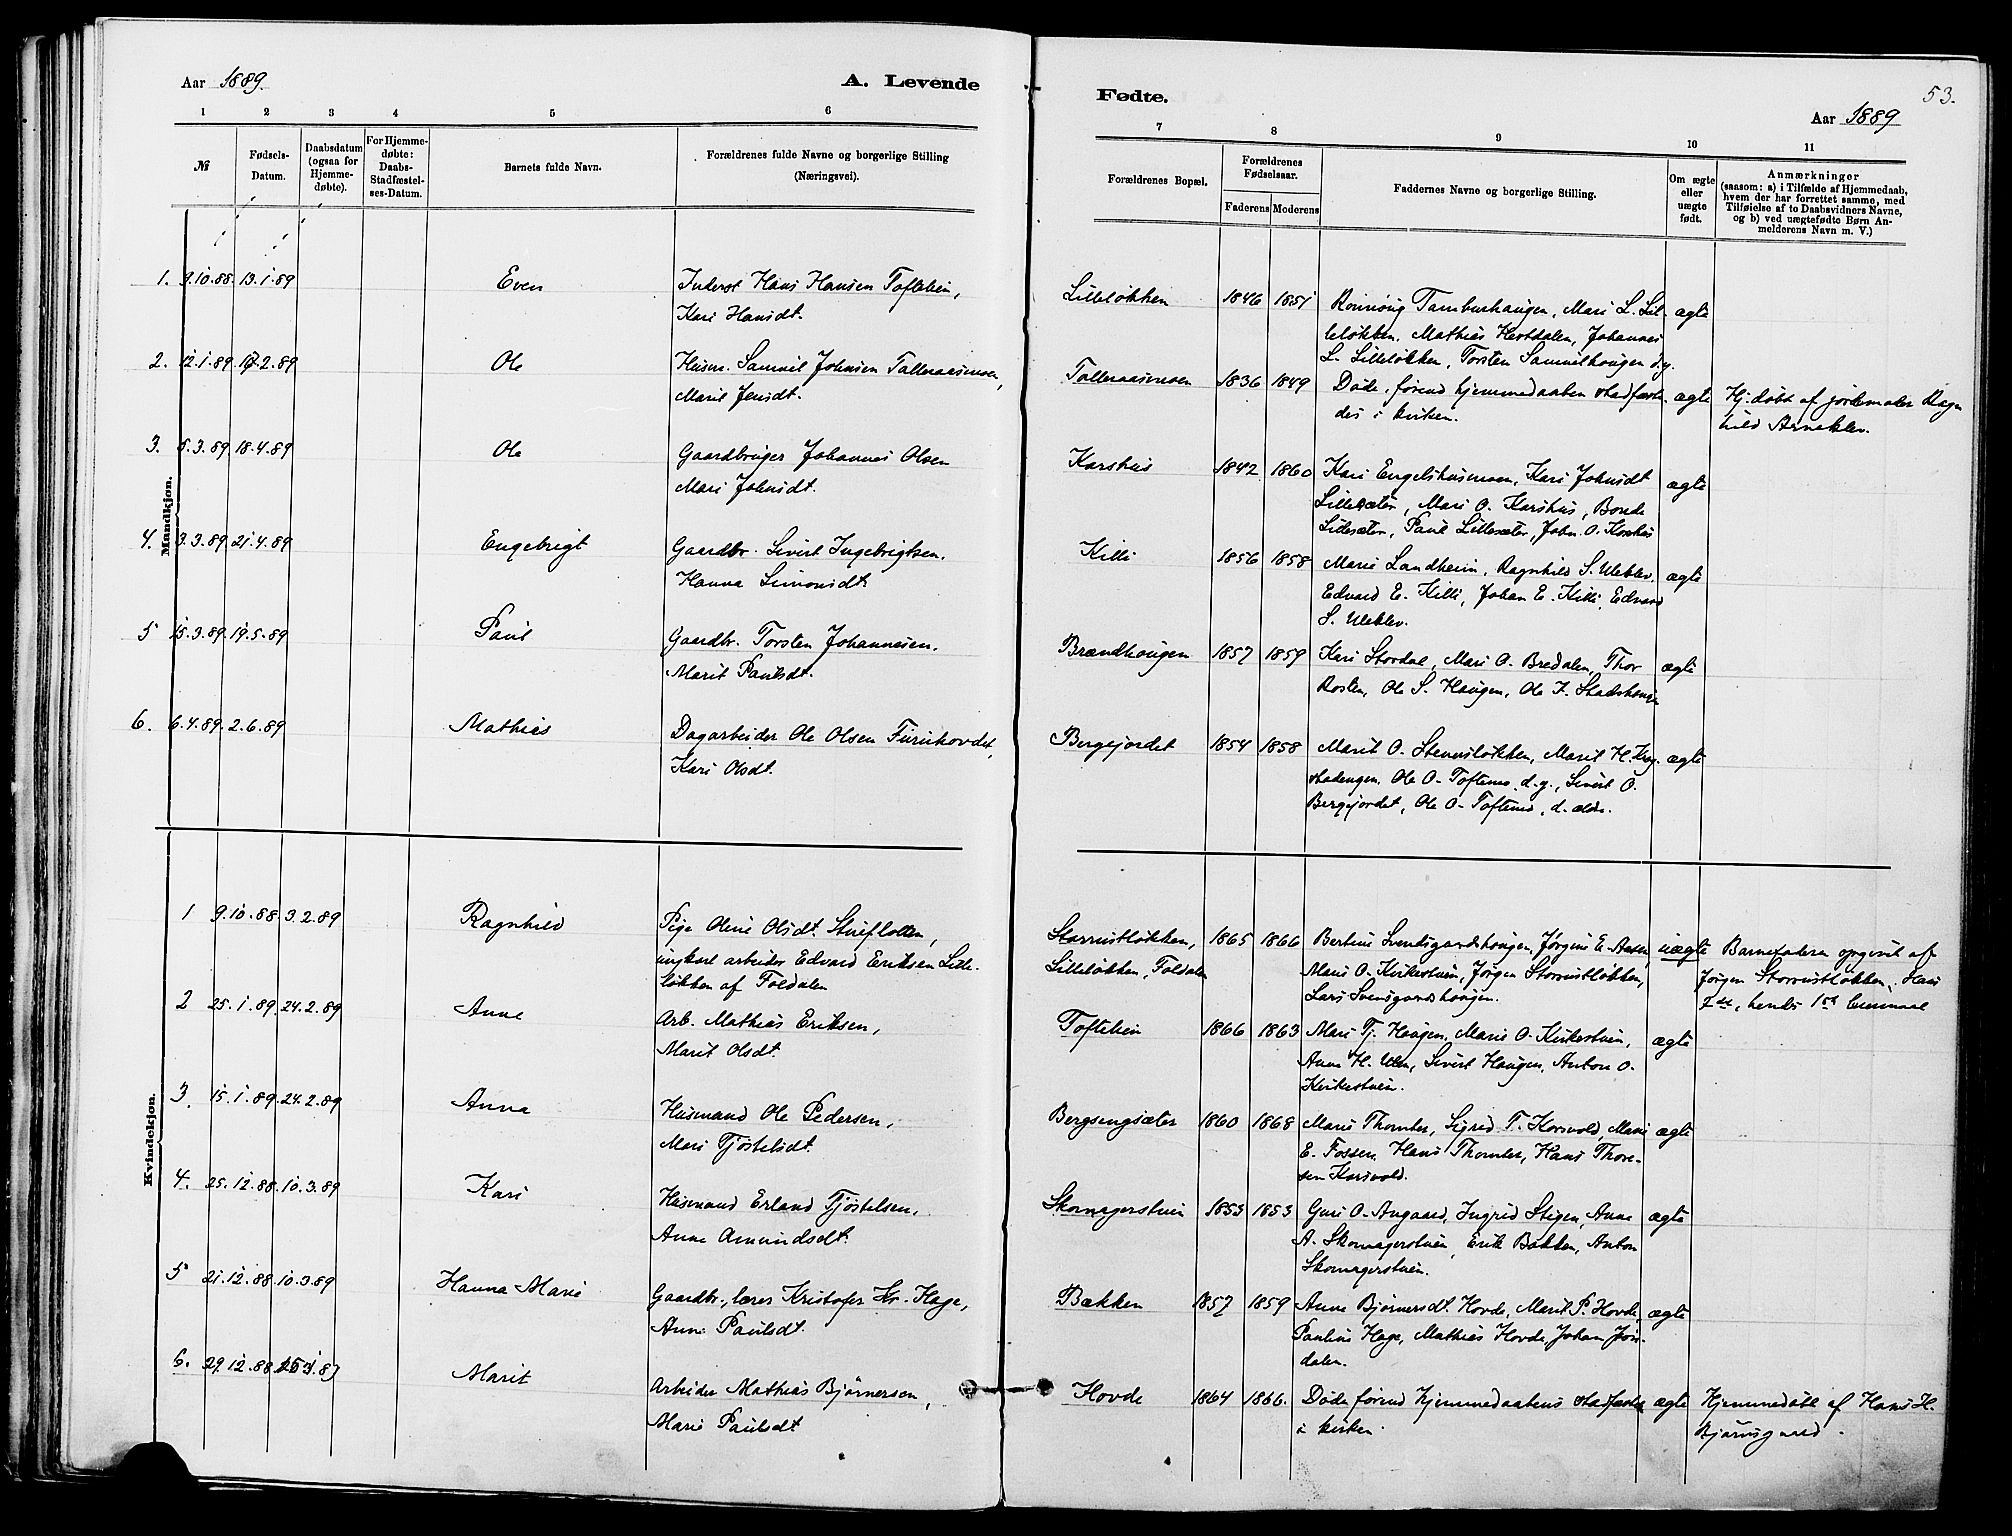 Aar 1889.
A. Levende
1 2 3 4 5 6
№
Fødsels-
Datum.
Daabsdatum
(ogsaa for
Hjemme-
døbte).
For Hjemme-
døbte:
Daabs-
Stadfæstel-
ses-Datum.
Barnets fulde Navn.
Forældrenes fulde Navne og borgerlige Stilling
(Næringsvei).
Mandkjøn.
1. 9.10.88. 13.1.89 Even Inderst Hans Hansen Toftelien,
Kari Hansdt.
2. 12.1.89 17.2.89 Ole Husm. Samuel Johnsen Talleraasmoen,
Marit Jensdt.
3. 5.3.89 18.4.89 Ole Gaardbruger Johannes Olsen
Mari Johnsdt.
4. 3.3.89 21.4.89 Engebrigt Gaardbr. Sivert Ingebrigtsen.
Hanna Simonsdt.
5 15.3.89. 19.5.89 Paul Gaardbr. Torsten Johannesen.
Marit Paulsdt.
6. 6.4.89. 2.6.89 Mathias Dagarbeider Ole Olsen Furuhovdet,
Kari Olsdt.
Kvindekjøn.
1 9.10.88 3.2.89 Ragnhild Pige Oline Olsdt. Stuefloten,
ungkarl arbeider Edvard Eriksen Lille-
løkken af Foldalen
2 25.1.89 24.2.89 Anne Arb. Mathias Eriksen,
Marit Olsdt.
3. 15.1.89. 24.2.89 Anna Husmand Ole Pedersen,
Mari Tjøstelsdt.
4. 25.12.88. 10.3.89 Kari Husmand Erland Tjøstelsen.
Anne Amundsdt.
5 21.12.88. 10.3.89 Hanna Marie Gaardbr., lærer Kristofer Kr. Hage,
Anne Paulsdt.
6. 29.12.88 Marit Arbeider Mathias Bjørnersen,
Marie Paulsdt
Fødte.
53.
Aar 1889
7 8 9 10 11
Forældrenes Bopæl.
Forældrenes
Fødselsaar.
Faderens Moderens
Faddernes Navne og borgerlige Stilling.
Om ægte
eller
uægte
født.
Anmærkninger
(saasom: a) i Tilfælde af Hjemmedaab,
hvem der har forrettet samme, med
Tilføielse af to Daabsvidners Navne,
og b) ved uægtefødte Børn An-
melderens Navn m. V.)
Lilleløkken 1846 1851 Rønnoug Tamburhaugen, Mari L. Lil- ægte
leløkken. Mathias Hestdalen, Johannes
L. Lilleløkken, Torsten Samuelhougen d.y.
Talleraasmoen 1836 1849 Døde, førend hjemmedaaben stadfæste- ægte Hj. døbt af jordemoder Ragn
des i kirken. hild Arneklev.
Korshus 1842 1860 Kari Engelshusmoen, Kari Johnsdt ægte
Lillesæter, Mari O. Korshus, Borde
Lillesæter, Paul Lillesæter, John O. Korshus
Killi 1856 1858 Marie Landheim, Ragnhild S. Uleklev. ægte
Edvard E. Killi, Johan E. Killi, Edvard
S. Uleklev.
Brændhougen 1857 1859 Kari Stordal, Mari O. Bredalen, Thor ægte
Rosten, Ole S. Haugen, Ole J.
Bergejordet 1854 1858 Marit O. Stenersløkken, Marit H. Krog- ægte
stadengen. Ole O. Toftemo d.y., Sivert O.
Bergejordet, Ole O. Toftemo, d. ældre.
Storrustløkken, 1865 1866 Bertine Svendsgardshougen, Jørgine E. Aasen, uægte Barnefaderen opgivet af
Lilleløkken, Foldalen Mari O. Kirkestuen, Jørgen Storrustløkken, Jørgen Storrustløkken. Hans
Lars Svensgardshougen. 2det, hendes 1ste leiermaal
Toftelien 1866 1863 Mari Tj. Haugen, Marie O. Kirkestuen, ægte
Anne H. Ulen, Sivert Haugen, Anton O.
Kirkestuen.
Bergsengsæter 1860 1868 Mari Thomter, Sigrid T. Korsvold, Marie ægte
E. Fossen, Hans Thomter, Hans Thore-
sen Korsvold.
Skomagerstuen 1853 1853 Guri O. Angaard, Ingrid Stigen, Anne ægte
A. Skomagerstuen, Erik Bakken, Anton
Skomagerstuen.
Bækken 1857 1859 Anne Bjørnersdt. Hovde, Marit P. Hovde, ægte
Pauline Hage, Mathias Hovde, Johan Jøn-
dalen.
Hovde 1864 1866. Døde førend hjemmedaabens stadfæstelse ægte Hjemmedøbt af Hans H.
i kirken. Bjørnsgaard.